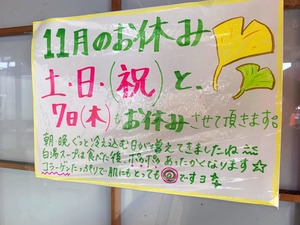 11月のお休み
土・日・(祝)と、
7日(木)もお休みさせて頂きます。
朝・晩ぐっと冷え込む日が増えてきましたね
白湯スープは食べた後、ポカポカあったかくなります☆
コラーゲンたっぷりで肌にもとっても◎ですヨ